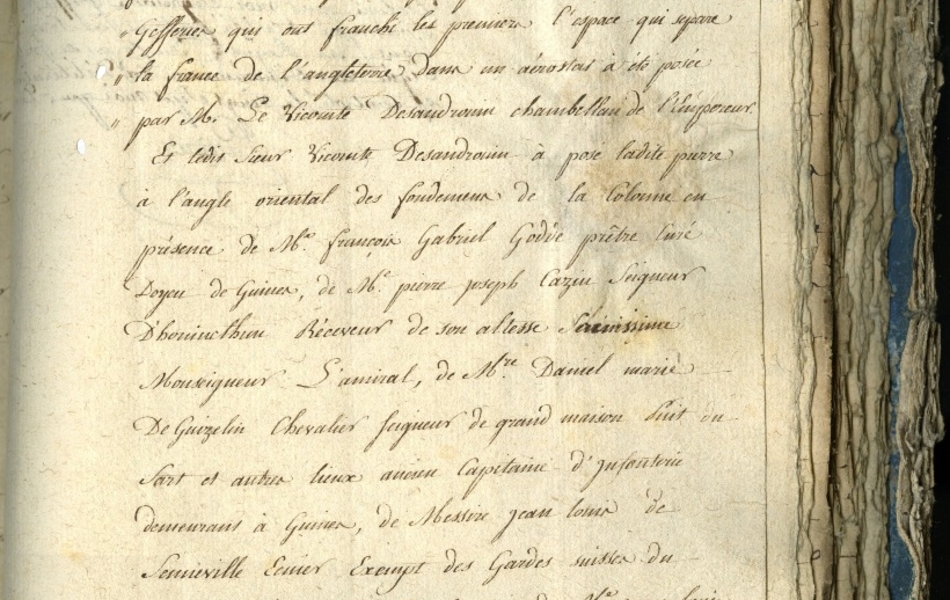 " Gefferies qui ont franchi les premiers l'espace qui separe
" la france de l'angleterre, dans un aérostat à été posée
" par M. Le Vicomte Desandrouin chambellan de l'Empereur.
Et ledit Sieur Vicomte Desandrouin à posé ladite pierre
à l'angle oriental des fondemens de la Colonne en
présence de Me. françois Gabriel Godde prêtre Curé
Doyen de Guines, de Me. pierre joseph Cazin Seigneur
D'honincthun Réceveur de son altesse Sérénissime
Monseigneur L'amiral, de Mre. Daniel marie
De Guizelin Chevalier seigneur de grand maison
Sart et autres lieux ancien Capitaine d'jnfanterie
demeurant à Guines, de Messire jean louis de
Semieville Ecuier Exempt des Gardes suisses du